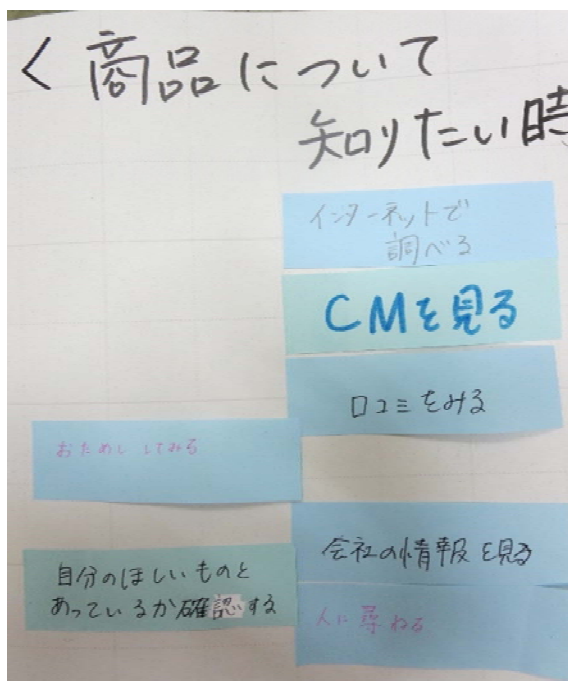 <商品について
知りたい時
インターネットで
調べる
CMを見る
口コミをみる
おためししてみる
会社の情報を見る
自分のほしいものと
あっているか確認する
人に尋ねる